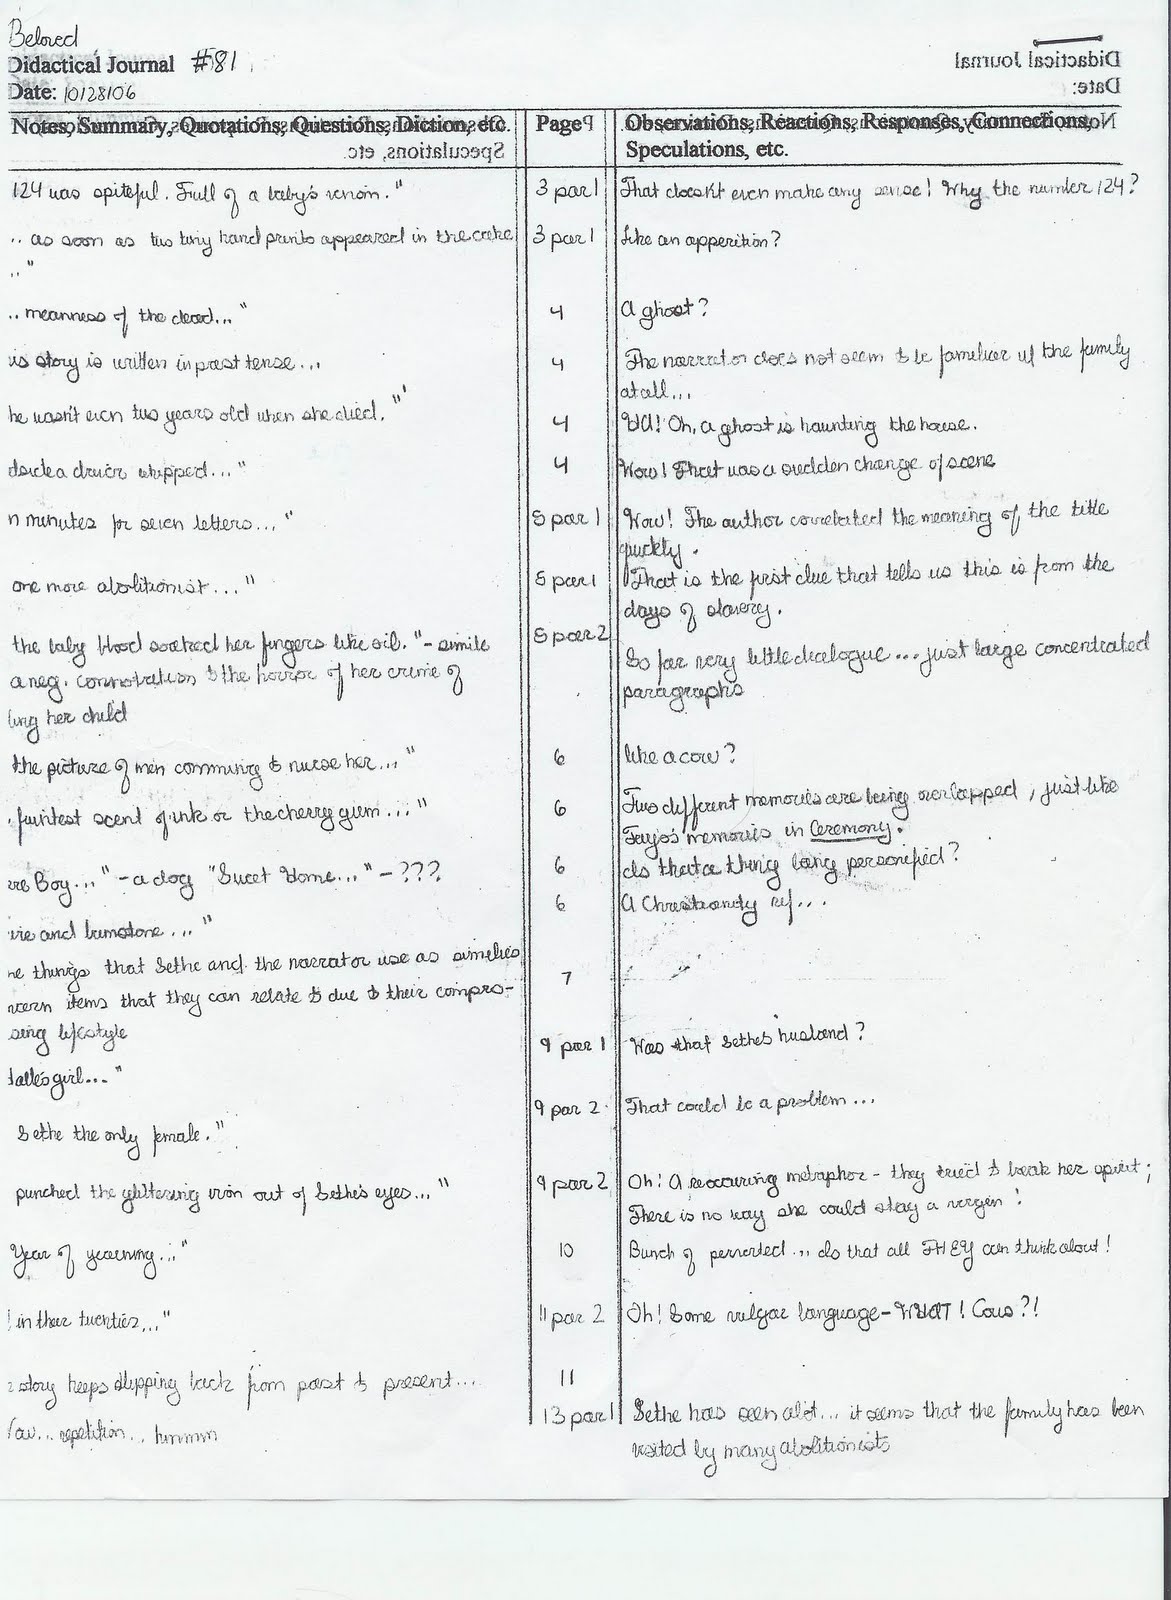 Beloved
Didactical Journal #81
Date: 10/28/06
Notes, Summary, Quotations, Questions, Diction, etc. Page Observations, Reactions, Responses, Connections,
Speculations, etc.
124 was spiteful. Full of a baby's venom." 3 par 1 That doesn't even make any sense! Why the number 124?
.. as soon as two tiny hand prints appeared in the cake 3 par 1 Like an apperition?
.."
.. meanness of the dead..." 4 A ghost?
is story is written in past tense... 4 The narrator does not seem to be familiar w/ the family
at all...
he wasn't even two years old when she died." 4 Oh, a ghost is haunting the house.
driver whipped..." 4 Wow! That was a sudden change of scene
n minutes for seven letters..." 5 par 1 Wow! The author correlated the meaning of the title
quickly.
one more abolitionist..." 5 par 1 That is the first clue that tells us this is from the
days of slavery.
the baby blood soaked her fingers like oil." - simile 5 par 2
So far very little dialogue... just large concentrated
a neg. connotation to the horror of her crime of
paragraphs
ling her child
the picture of men comming to nurse her..." 6 like a cow?
. faintest scent of ink or the cherry gum..." 6 Two different memories are being overlapped, just like
Tayo's memories in Ceremony.
ere Boy..." - a dog "Sweet Home..." - ??? 6 Is that a thing being personified?
6 A Christianity ref...
ire and brimstone..."
he things that Sethe and the narrator use as similies 7
ncern items that they can relate to due to their compro-
sing lifestyle
9 par 1 Was that Sethe's husband?
Halle's girl..."
9 par 2 That could be a problem...
Sethe the only female."
punched the glittering iron out of Sethe's eyes..." 9 par 2 Oh! A reoccuring metaphor - they tried to break her spirit;
There is no way she could stay a virgin!
Year of yearning..." 10 Bunch of perverted... is that all THEY can think about!
l in their twenties..." 11 par 2 Oh! Some vulgar language - WHAT! Cows?!
e story keeps slipping back from past to present... 11
13 par 1 Sethe has seen alot... it seems that the family has been
Vow... repetition... hmmm
visited by many abolitionists